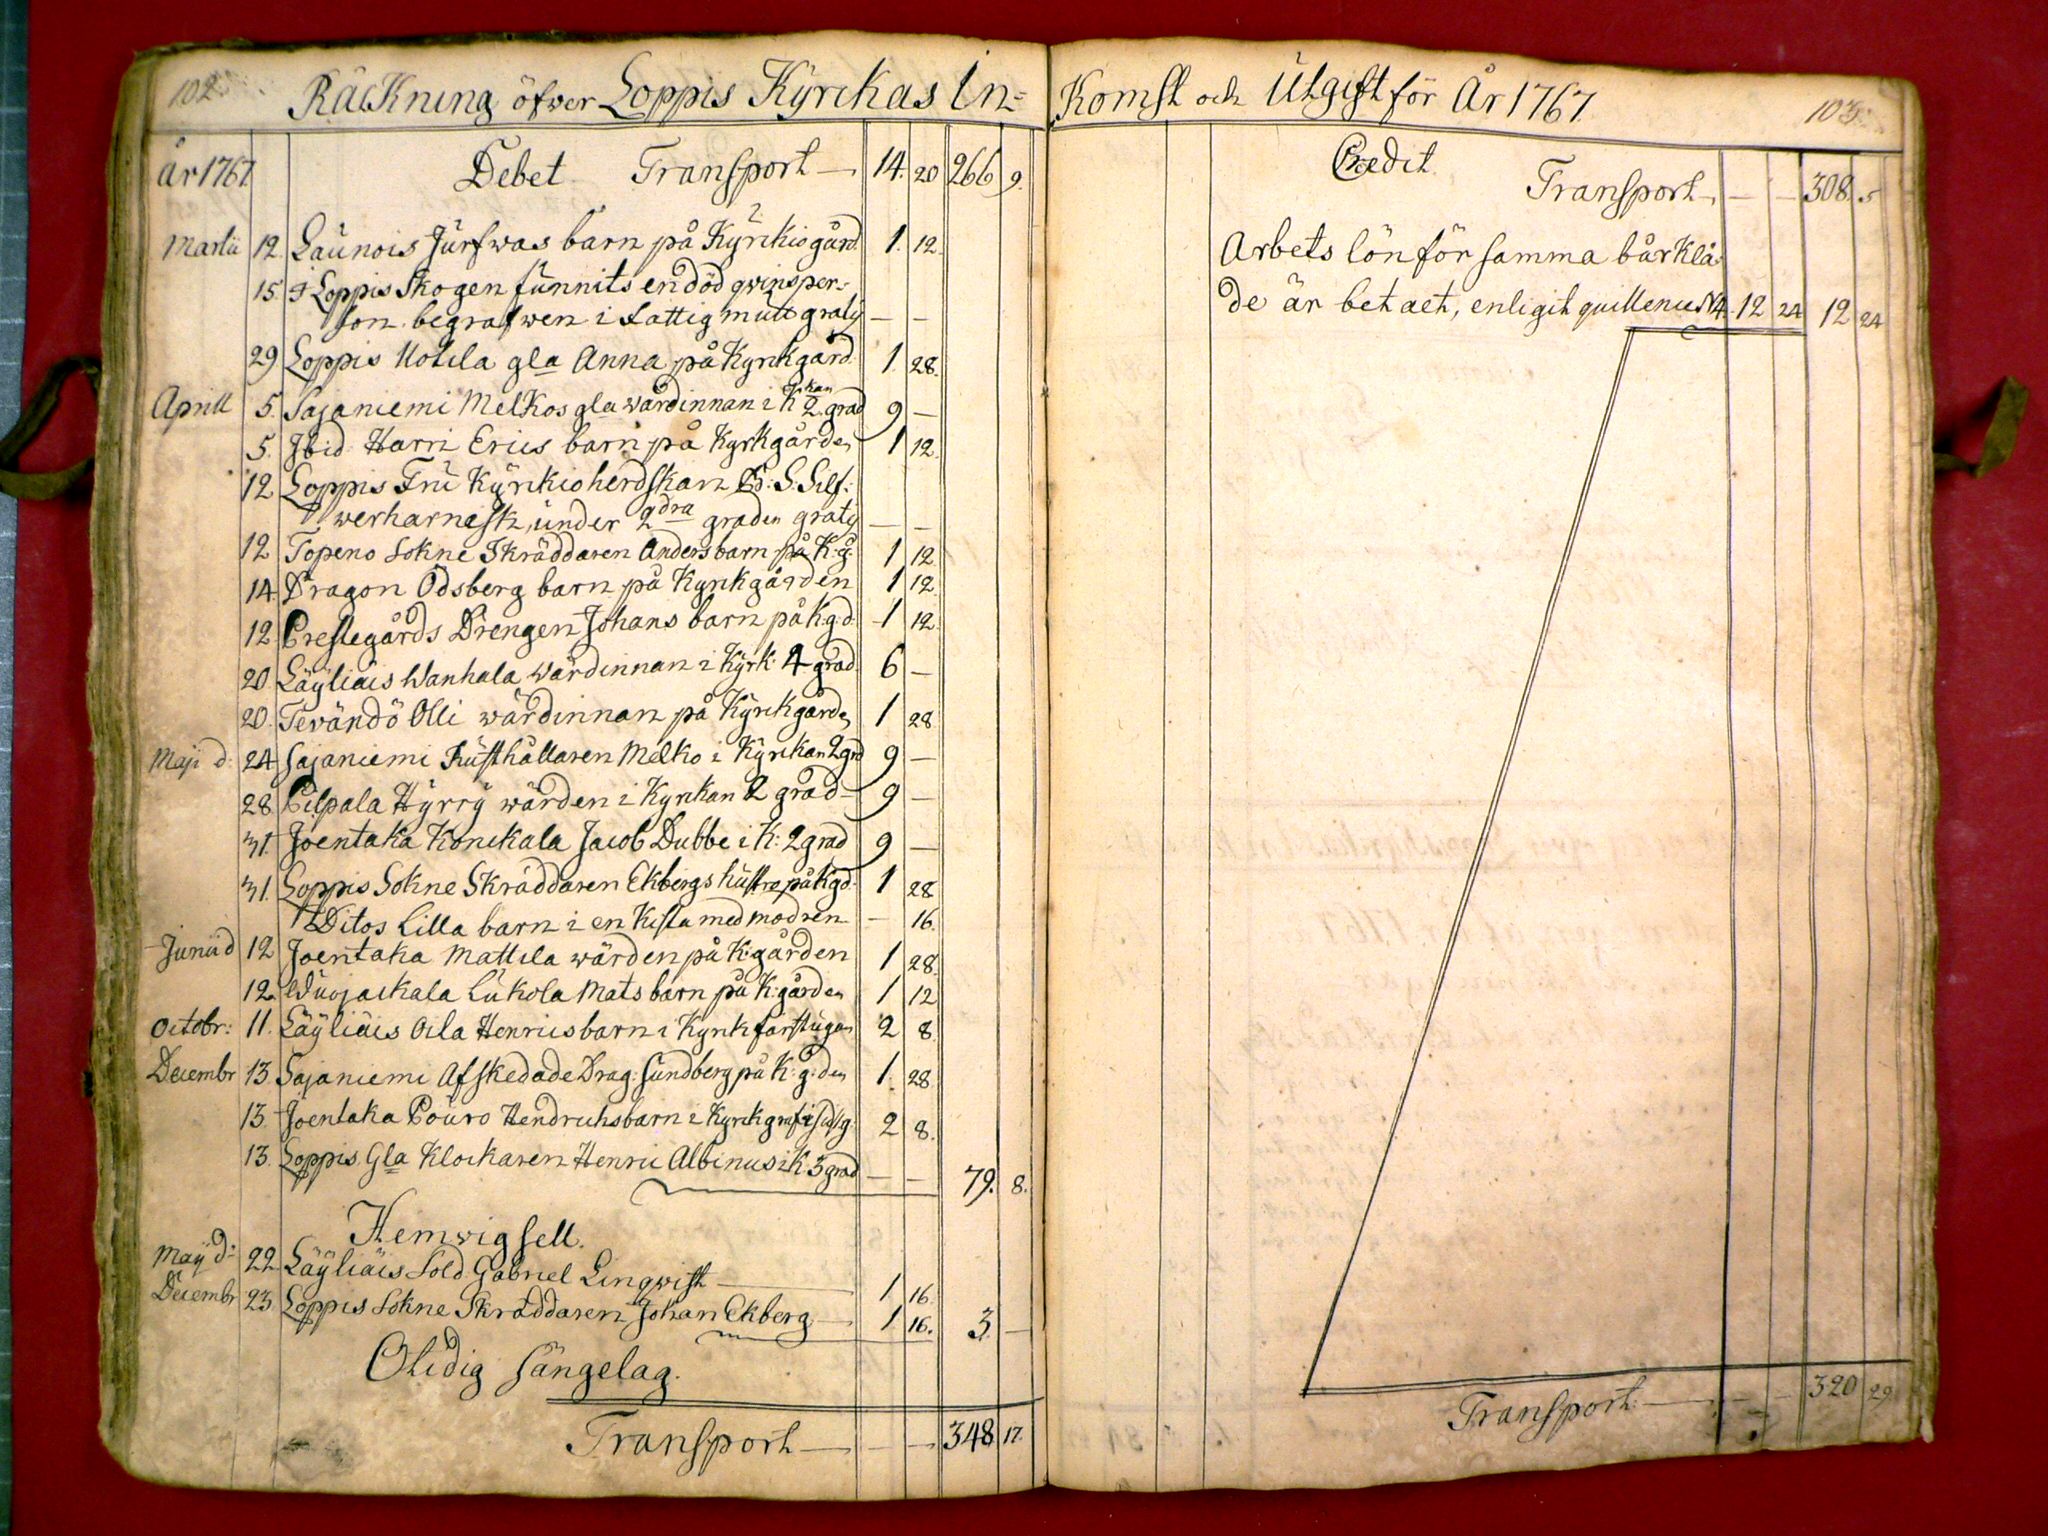 102
Räckning öfwer Loppis Kÿrckas In=
År 1767. Debet Transport — 14. 20 266 9.
Martii 12. Launois Jürfwas barn på Kÿrckiogård. 1. 12.
15. I Loppis Skogen funnits en död qwinsper=
son begrafwen i fattig mull gratÿ — —
29 Loppis Uotila gla Anna på Kyrkgård. 1. 28.
Aprill 5. Sajaniemi Melkos gla wärdinnan i K:kan 2. grad 9 —
5. Ibid Harri Erics barn på Kyrkgården 1 12.
12 Loppis Fru Kÿrckioherdskan Br: S. Silf:
werharnesk, under 2dra graden gratÿ — —
12 Topeno Sokne Skräddaren Anders barn på K:g: 1 12.
14 Dragon Ödsberg barn på Kyrckgården 1 12.
12 Prestegårds Drengen Johans barn på K:g:d: 1 12.
20 Läÿliäis Wanhala wärdinnan i Kÿrk: 4 grad. 6 —
20. Tevändö Olli wärdinnan på Kÿrckgården 1 28
Maji d: 24 Sajaniemi Rusthållaren Melko i Kÿrckan 2 grd 9 —
28 Pilpala Hÿrrÿ wärden i Kyrckan 2 grad — 9 —
31 Joentaka Konckala Jacob Dubbe i K: 2 grad 9 —
31. Loppis Sokne Skräddaren Ekbergs hustro på Kgd. 1 28
Ditos Lilla barn i en Kista med modren — 16.
Junii d 12 Joentaka Mattila wärden på K:gården 1 28.
12. Wuojackala Lukola Mats barn på K:gården 1 12
Octobr: 11. Läÿliäis Oila Henrics barn i Kyrck farstugan 2 8.
Decembr 13. Sajaniemi Afskedade Drag: Sundberg på K:g:den 1. 28.
13. Joentaka Pouro Hendrichs barn i Kyrck 2 8.
13. Loppis Gla Klockaren Henric Albinus i K 3 grad — — 79. 8.
Hemwigsell.
Maÿ d: 22 Läÿliäis Sold Gabriel Lingwist — 1 16.
Decembr 23. Loppis Sokne Skräddaren Johan Ekberg — 1 16. 3. —
Olidig Sängelag.
Transport — — — 348 17.
Komst och Utgift för År 1767. 103
Credit
Transport — — — 308. 5
Arbets lön för samma bårklä=
de är betalt, enligit quittence N 4. 12 24 12 24
Transport — — — 320 29